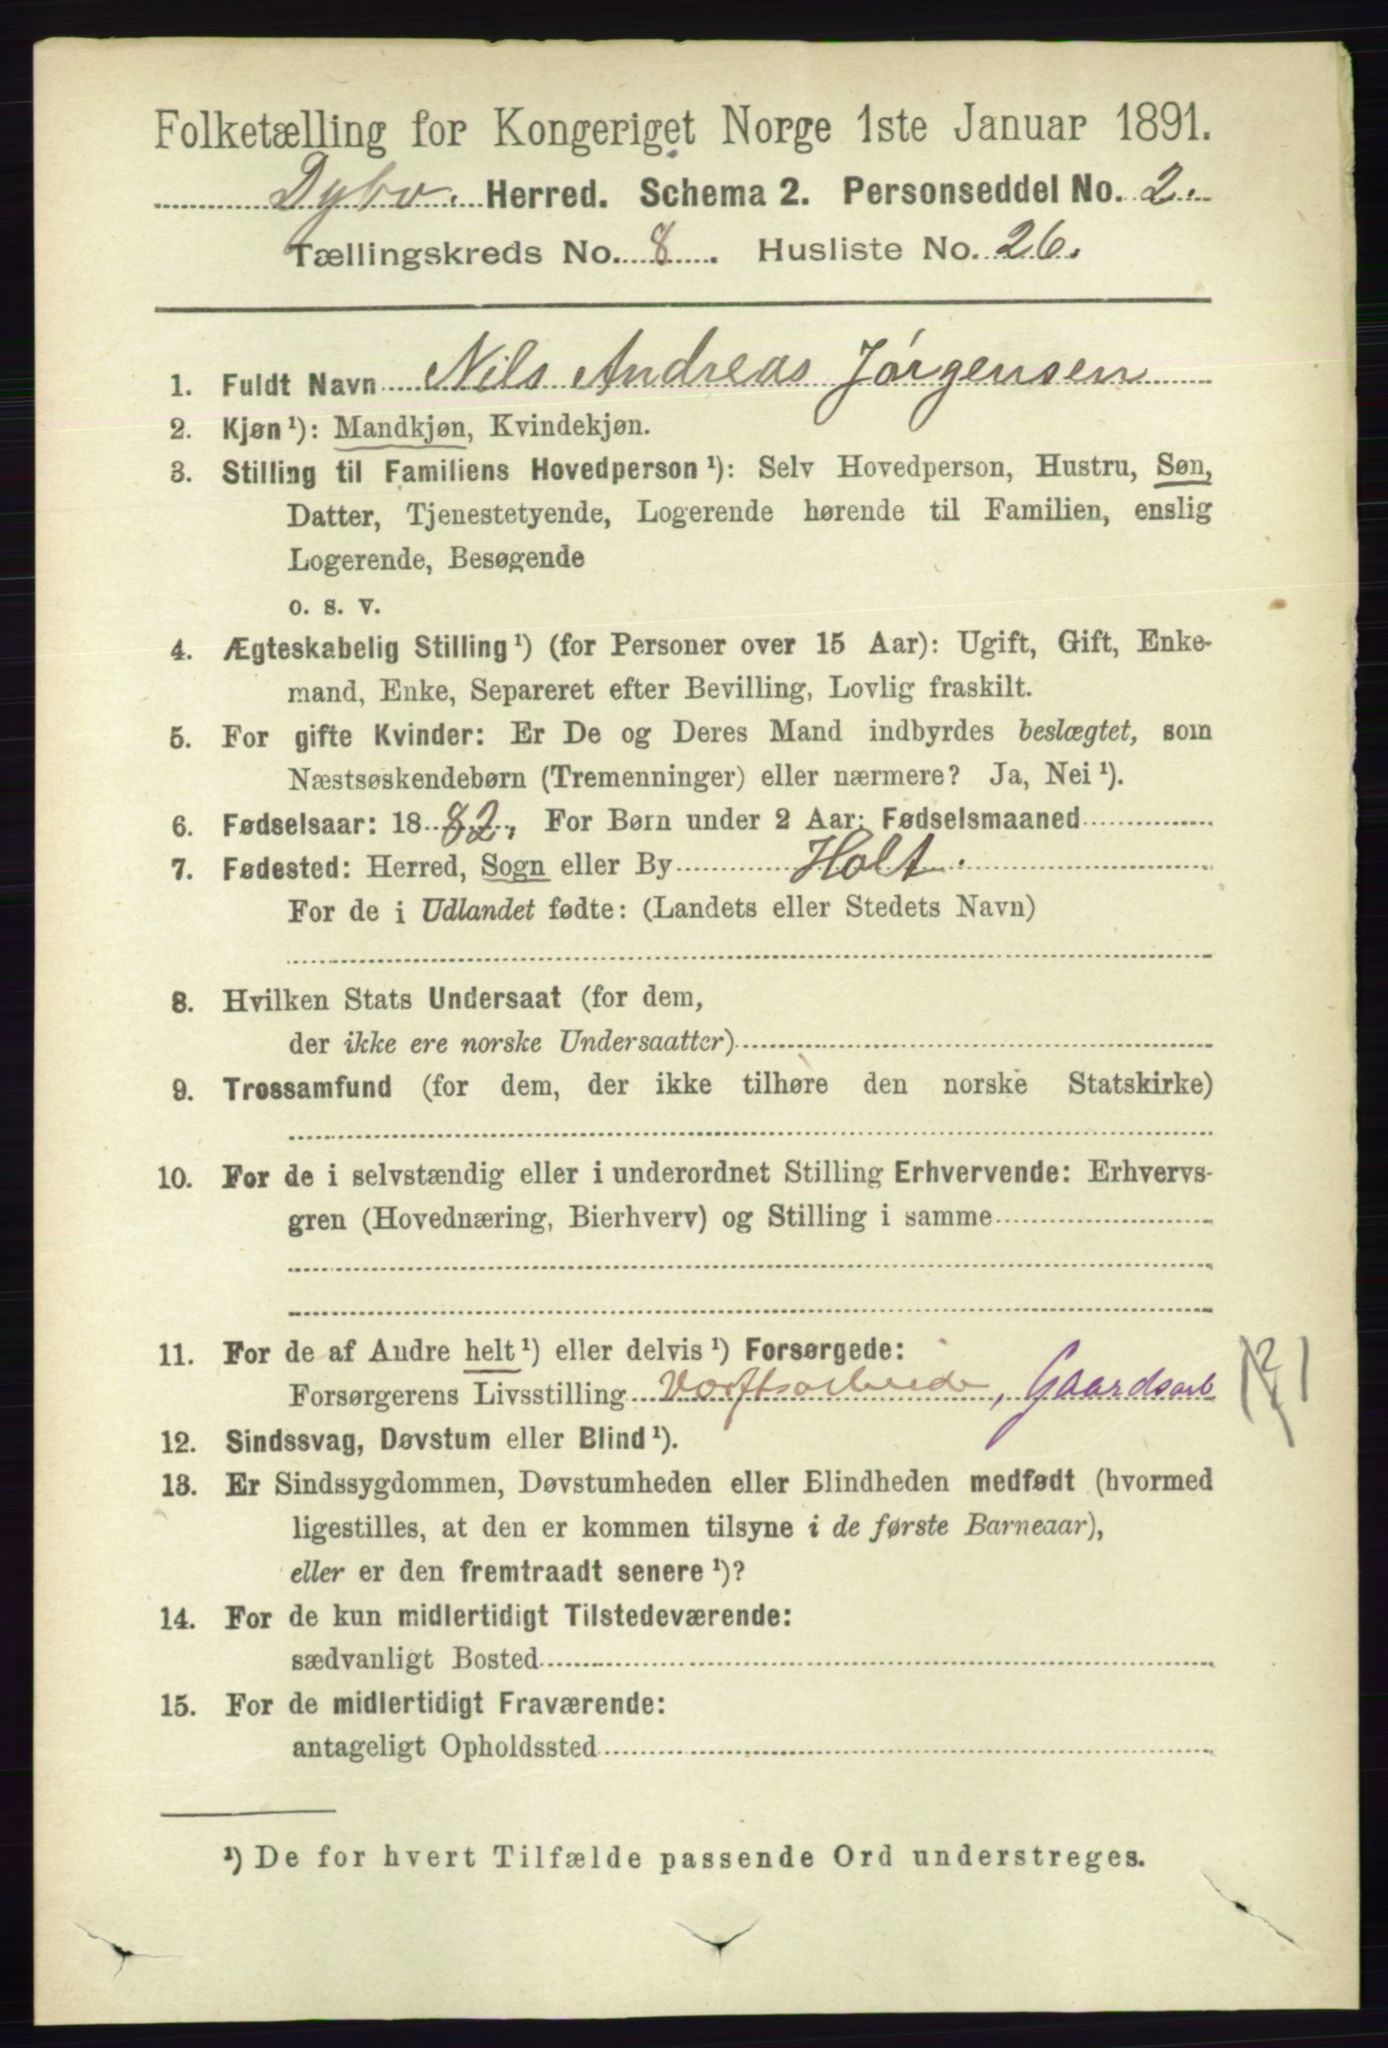 Folketælling for Kongeriget Norge 1ste Januar 1891.
Dybv. Herred. Schema 2. Personseddel No. 2.
Tællingskreds No. 8. Husliste No. 26.
1. Fuldt Navn Nils Andreas Jórgensen
2. Kjøn ¹): Mandkjøn, Kvindekjøn.
3. Stilling til Familiens Hovedperson ¹): Selv Hovedperson, Hustru, Søn,
Datter, Tjenestetyende, Logerende hørende til Familien, enslig
Logerende, Besøgende
o. s. v.
4. Ægteskabelig Stilling ¹) (for Personer over 15 Aar): Ugift, Gift, Enke-
mand, Enke, Separeret efter Bevilling, Lovlig fraskilt.
5. For gifte Kvinder: Er De og Deres Mand indbyrdes beslægtet, som
Næstsøskendebørn (Tremenninger) eller nærmere? Ja, Nei ¹).
6. Fødselsaar: 1882, For Børn under 2 Aar: Fødselsmaaned
7. Fødested: Herred, Sogn eller By Holt.
For de i Udlandet fødte: (Landets eller Stedets Navn)
8. Hvilken Stats Undersaat (for dem,
der ikke ere norske Undersaatter)
9. Trossamfund (for dem, der ikke tilhøre den norske Statskirke)
10. For de i selvstændig eller i underordnet Stilling Erhvervende: Erhvervs-
gren (Hovednæring, Bierhverv) og Stilling i samme
11. For de af Andre helt ¹) eller delvis ¹) Forsørgede:
Forsørgerens Livsstilling Verftsarbeide, Gaardsarb
12. Sindssvag, Døvstum eller Blind ¹).
13. Er Sindssygdommen, Døvstumheden eller Blindheden medfødt (hvormed
ligestilles, at den er kommen tilsyne i de første Barneaar),
eller er den fremtraadt senere ¹)?
14. For de kun midlertidigt Tilstedeværende:
sædvanligt Bosted
15. For de midlertidigt Fraværende:
antageligt Opholdssted
¹) De for hvert Tilfælde passende Ord understreges.